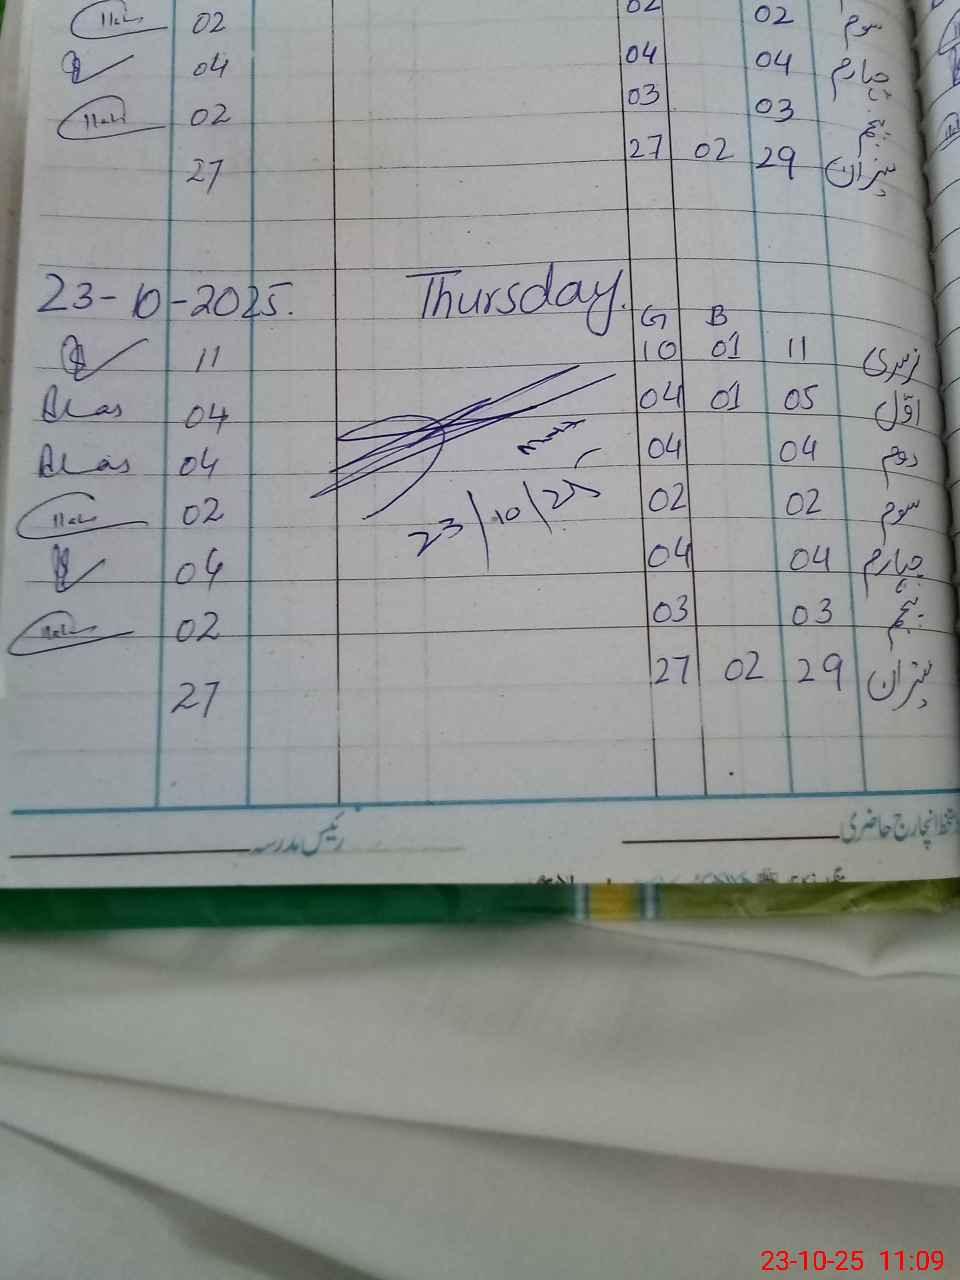 02 02 02 سوم
04 04 04 چہارم
02 03 03 پنجم
27 27 02 29 میزان
23-10-2025. Thursday.
G B
11 10 01 11 نرسری
04 04 01 05 اوّل
04 04 04 دوم
02 02 02 سوم
04 04 04 چہارم
02 03 03 پنجم
27 27 02 29 میزان
23/10/25
انچارج حاضری
رئیس مدرسہ
23-10-25 11:09